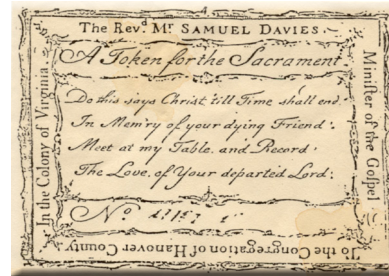 The Revᵈ Mʳ SAMUEL DAVIES.
Minister of the Gospel
To the Congregation of Hanover County
In the Colony of Virginia
A Token for the Sacrament
Do this says Christ 'till Time shall end,
In Mem'ry of your dying Friend;
Meet at my Table, and Record
The Love, of Your departed Lord:
Nº